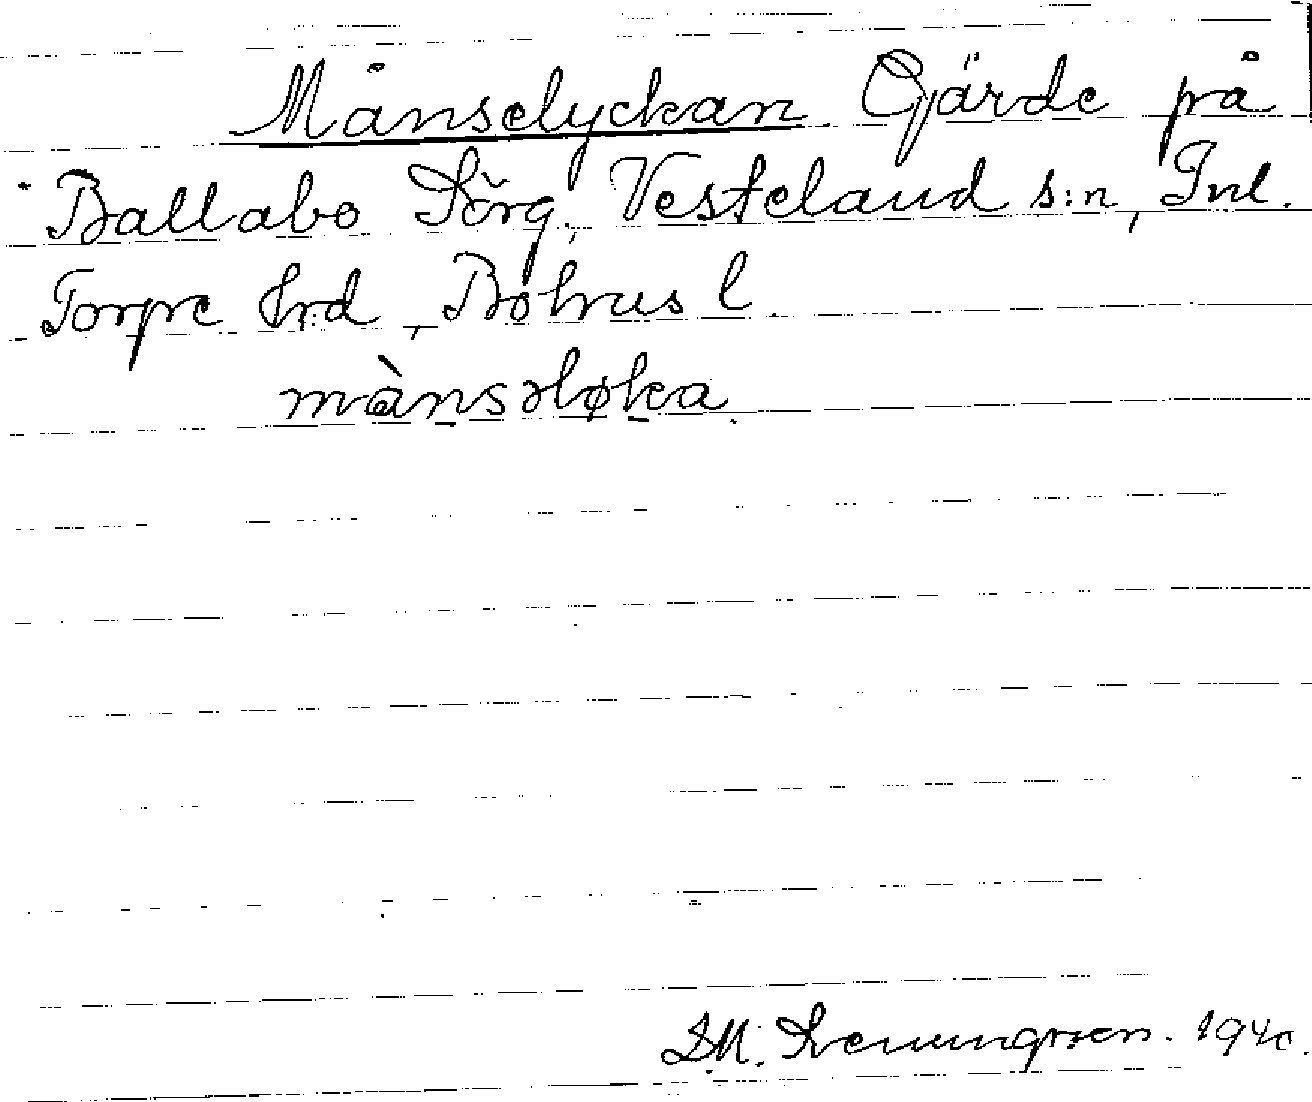 Månselyckan. Gärde på
Ballabo Sörg., Vesteland s:n, Inl.
Torpe hrd, Bohus l.
mànsəløka.
D.M. Svenungsson. 1940.